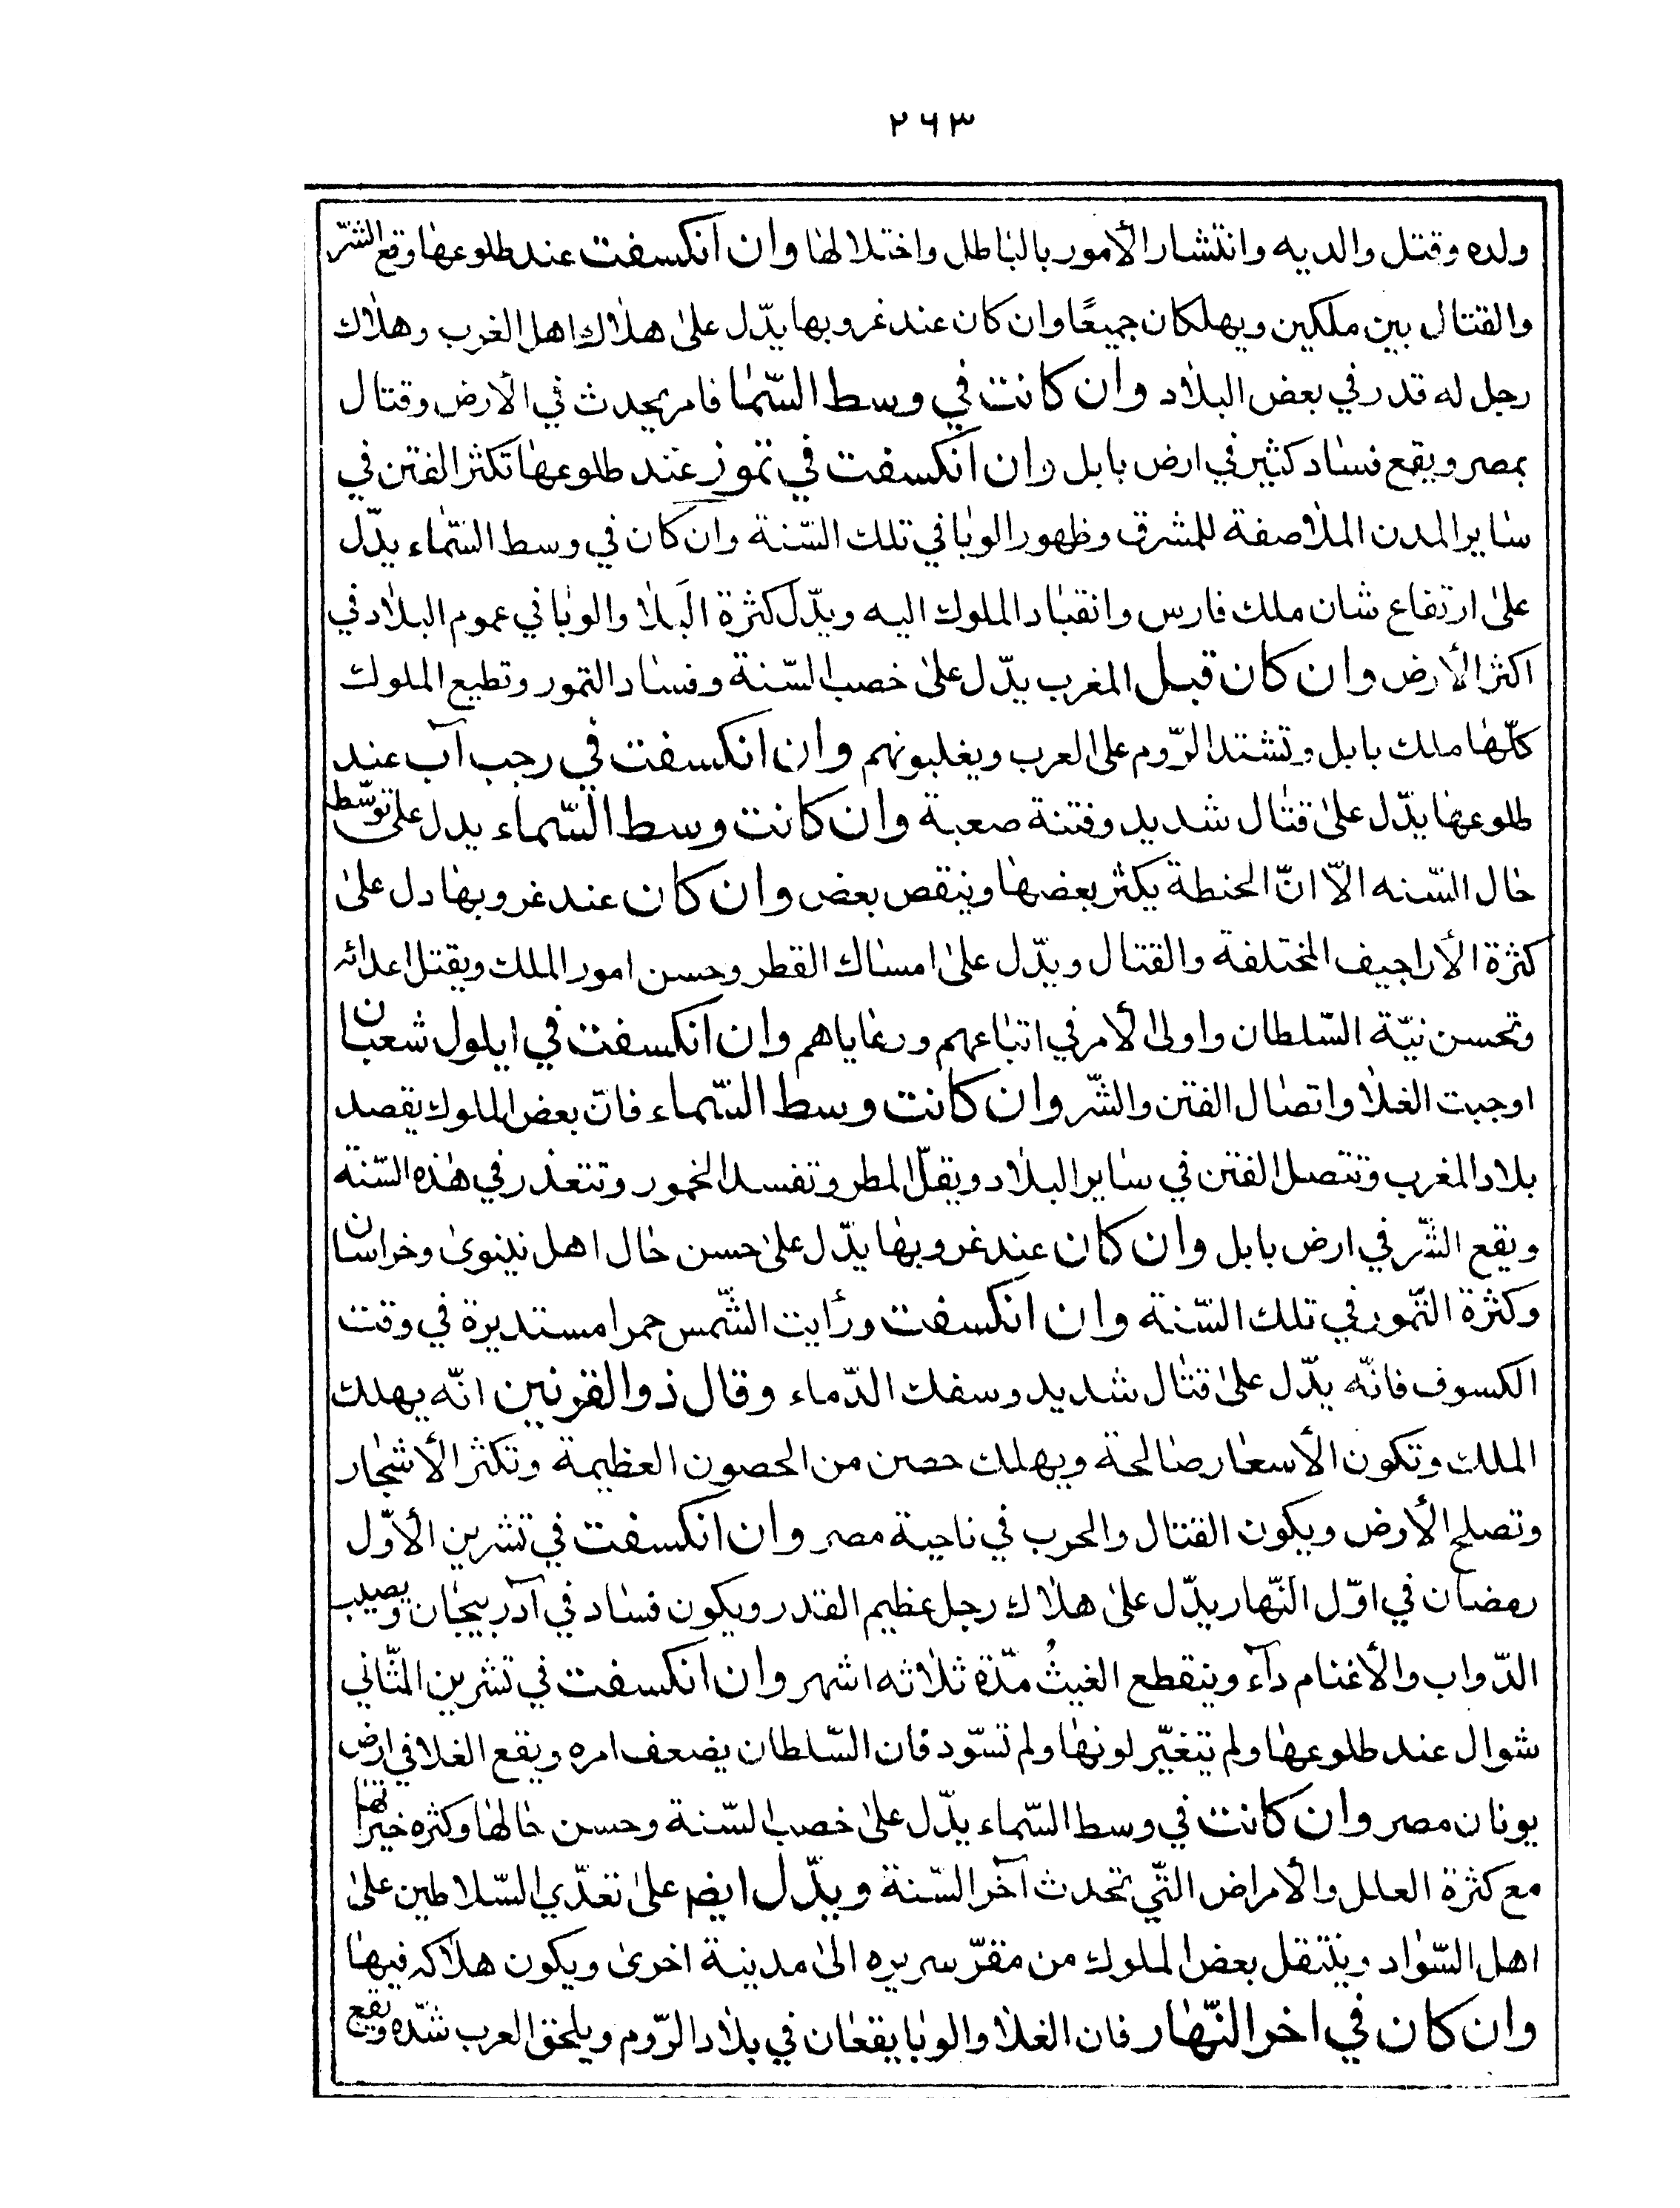 ٢٦٣
ولده وقتل والديه وانتشار الأمور بالباطل واختلالها وان انكسفت عند طلوعها وقع الشّر
والقتال بين ملكين ويهلكان جميعًا وان كان عند غروبها يدّل على هلاك اهل الغرب وهلاك
رجل له قدر في بعض البلاد وان كانت في وسط السّما فامر يحدث في الأرض وقتال
بمصر ويقع فساد كثير في ارض بابل وان انكسفت في تموز عند طلوعها تكثر الفتن في
ساير المدن الملاصقة للمشرق وظهور الوبا في تلك السّنة وان كان في وسط السّماء يدّل
على ارتفاع شان ملك فارس وانقياد الملوك اليه ويدّل كثرة البلا والوبا في عموم البلاد في
اكثر الأرض وان كان قبل المغرب يدّل على خصب السّنة وفساد التمور وتطيع الملوك
كلّها ملك بابل وتشتد الرّوم على العرب ويغلبونهم وان انكسفت في رجب آب عند
طلوعها يدّل على قتال شديد وفتنة صعبة وان كانت وسط السّماء يدل على توسّط
حال السّنه الاّ انّ الحنطة يكثر بعضها وينقص بعض وان كان عند غروبها دل على
كثرة الأراجيف المختلفة والقتال ويدّل على امساك القطر وحسن امور الملك ويقتل اعدائه
وتحسن نيّة السّلطان واولى الأمر في اتباعهم ورعاياهم وان انكسفت في ايلول شعبان
اوجبت الغلا واتصال الفتن والشّر وان كانت وسط السّماء فانّ بعض الملوك يقصد
بلاد المغرب وتتصل الفتن في ساير البلاد ويقلّ المطر وتفسد الخمور وتتعذر في هذه السّنة
ويقع الشّر في ارض بابل وان كان عند غروبها يدّل على حسن حال اهل نينوى وخراسان
وكثرة التّمور في تلك السّنة وان انكسفت ورأيت الشّمس حمرا مستديرة في وقت
الكسوف فانّه يدّل على قتال شديد وسفك الدّماء وقال ذوالقرنين انّه يهلك
الملك وتكون الأسعار صالحة ويهلك حصن من الحصون العظيمة وتكثر الأشجار
وتصلح الأرض ويكون القتال والحرب في ناحية مصر وان انكسفت في تشرين الأوّل
رمضان في اوّل النّهار يدّل على هلاك رجل عظيم القدر ويكون فساد في آدربيجان ويصيب
الدّواب والأغنام دآء وينقطع الغيثُ مدّة ثلاثه اشهر وان انكسفت في تشرين الثّاني
شوال عند طلوعها ولم يتغيّر لونها ولم تسّود فان السّلطان يضعف امره ويقع الغلا في ارض
يونان مصر وان كانت في وسط السّماء يدّل على خصب السّنة وحسن حالها وكثره خيراتها
مع كثرة العلل والأمراض التّي تحدث آخر السّنة ويدّل ايضم على تعدّي السّلاطين على
اهل السّواد وينتقل بعض الملوك من مقرّ سريره الى مدينة اخرى ويكون هلاكه فيها
وان كان في اخر النّهار فان الغلا والوبا يقعان في بلاد الرّوم ويلحق العرب شدّه ويقع